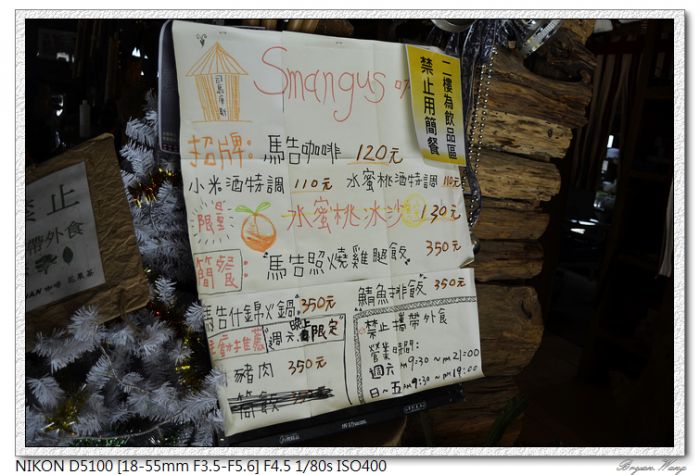 Smangus
司馬庫斯
二樓為飲品區
禁止用簡餐
招牌: 馬告咖啡 120元
小米酒特調 110元 水蜜桃酒特調 110元
限量 水蜜桃冰沙 130元
簡餐: 馬告照燒雞腿飯 350元
馬告什錦火鍋 350元 鯖魚排飯 350元
推薦 週六 晚上 限定
豬肉 350元
簡飲 350元
禁止攜帶外食
營業時間:
週六 AM9:30~PM21:00
日~五 AM9:30~PM19:00
禁止
帶外食
咖啡 花果茶
NIKON D5100 [18-55mm F3.5-F5.6] F4.5 1/80s ISO400
Bryan Wang